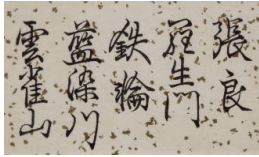 張良
羅生門
鉄輪
藍染川
雲雀山